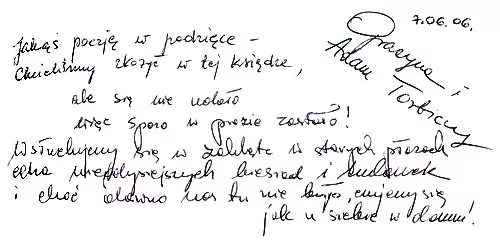 Jakąś poezję w podzięce –
Chcieliśmy złożyć w tej książce,
ale się nie udało
więc sporo w prozie zostało!
Wsłuchujemy się w zaklęte w starych murach
echa niegdysiejszych biesiad i
i choć dawno nas tu nie było, czujemy się
jak u siebie w domu!
7.06.06.
Grażyna i
Adam Torbiccy